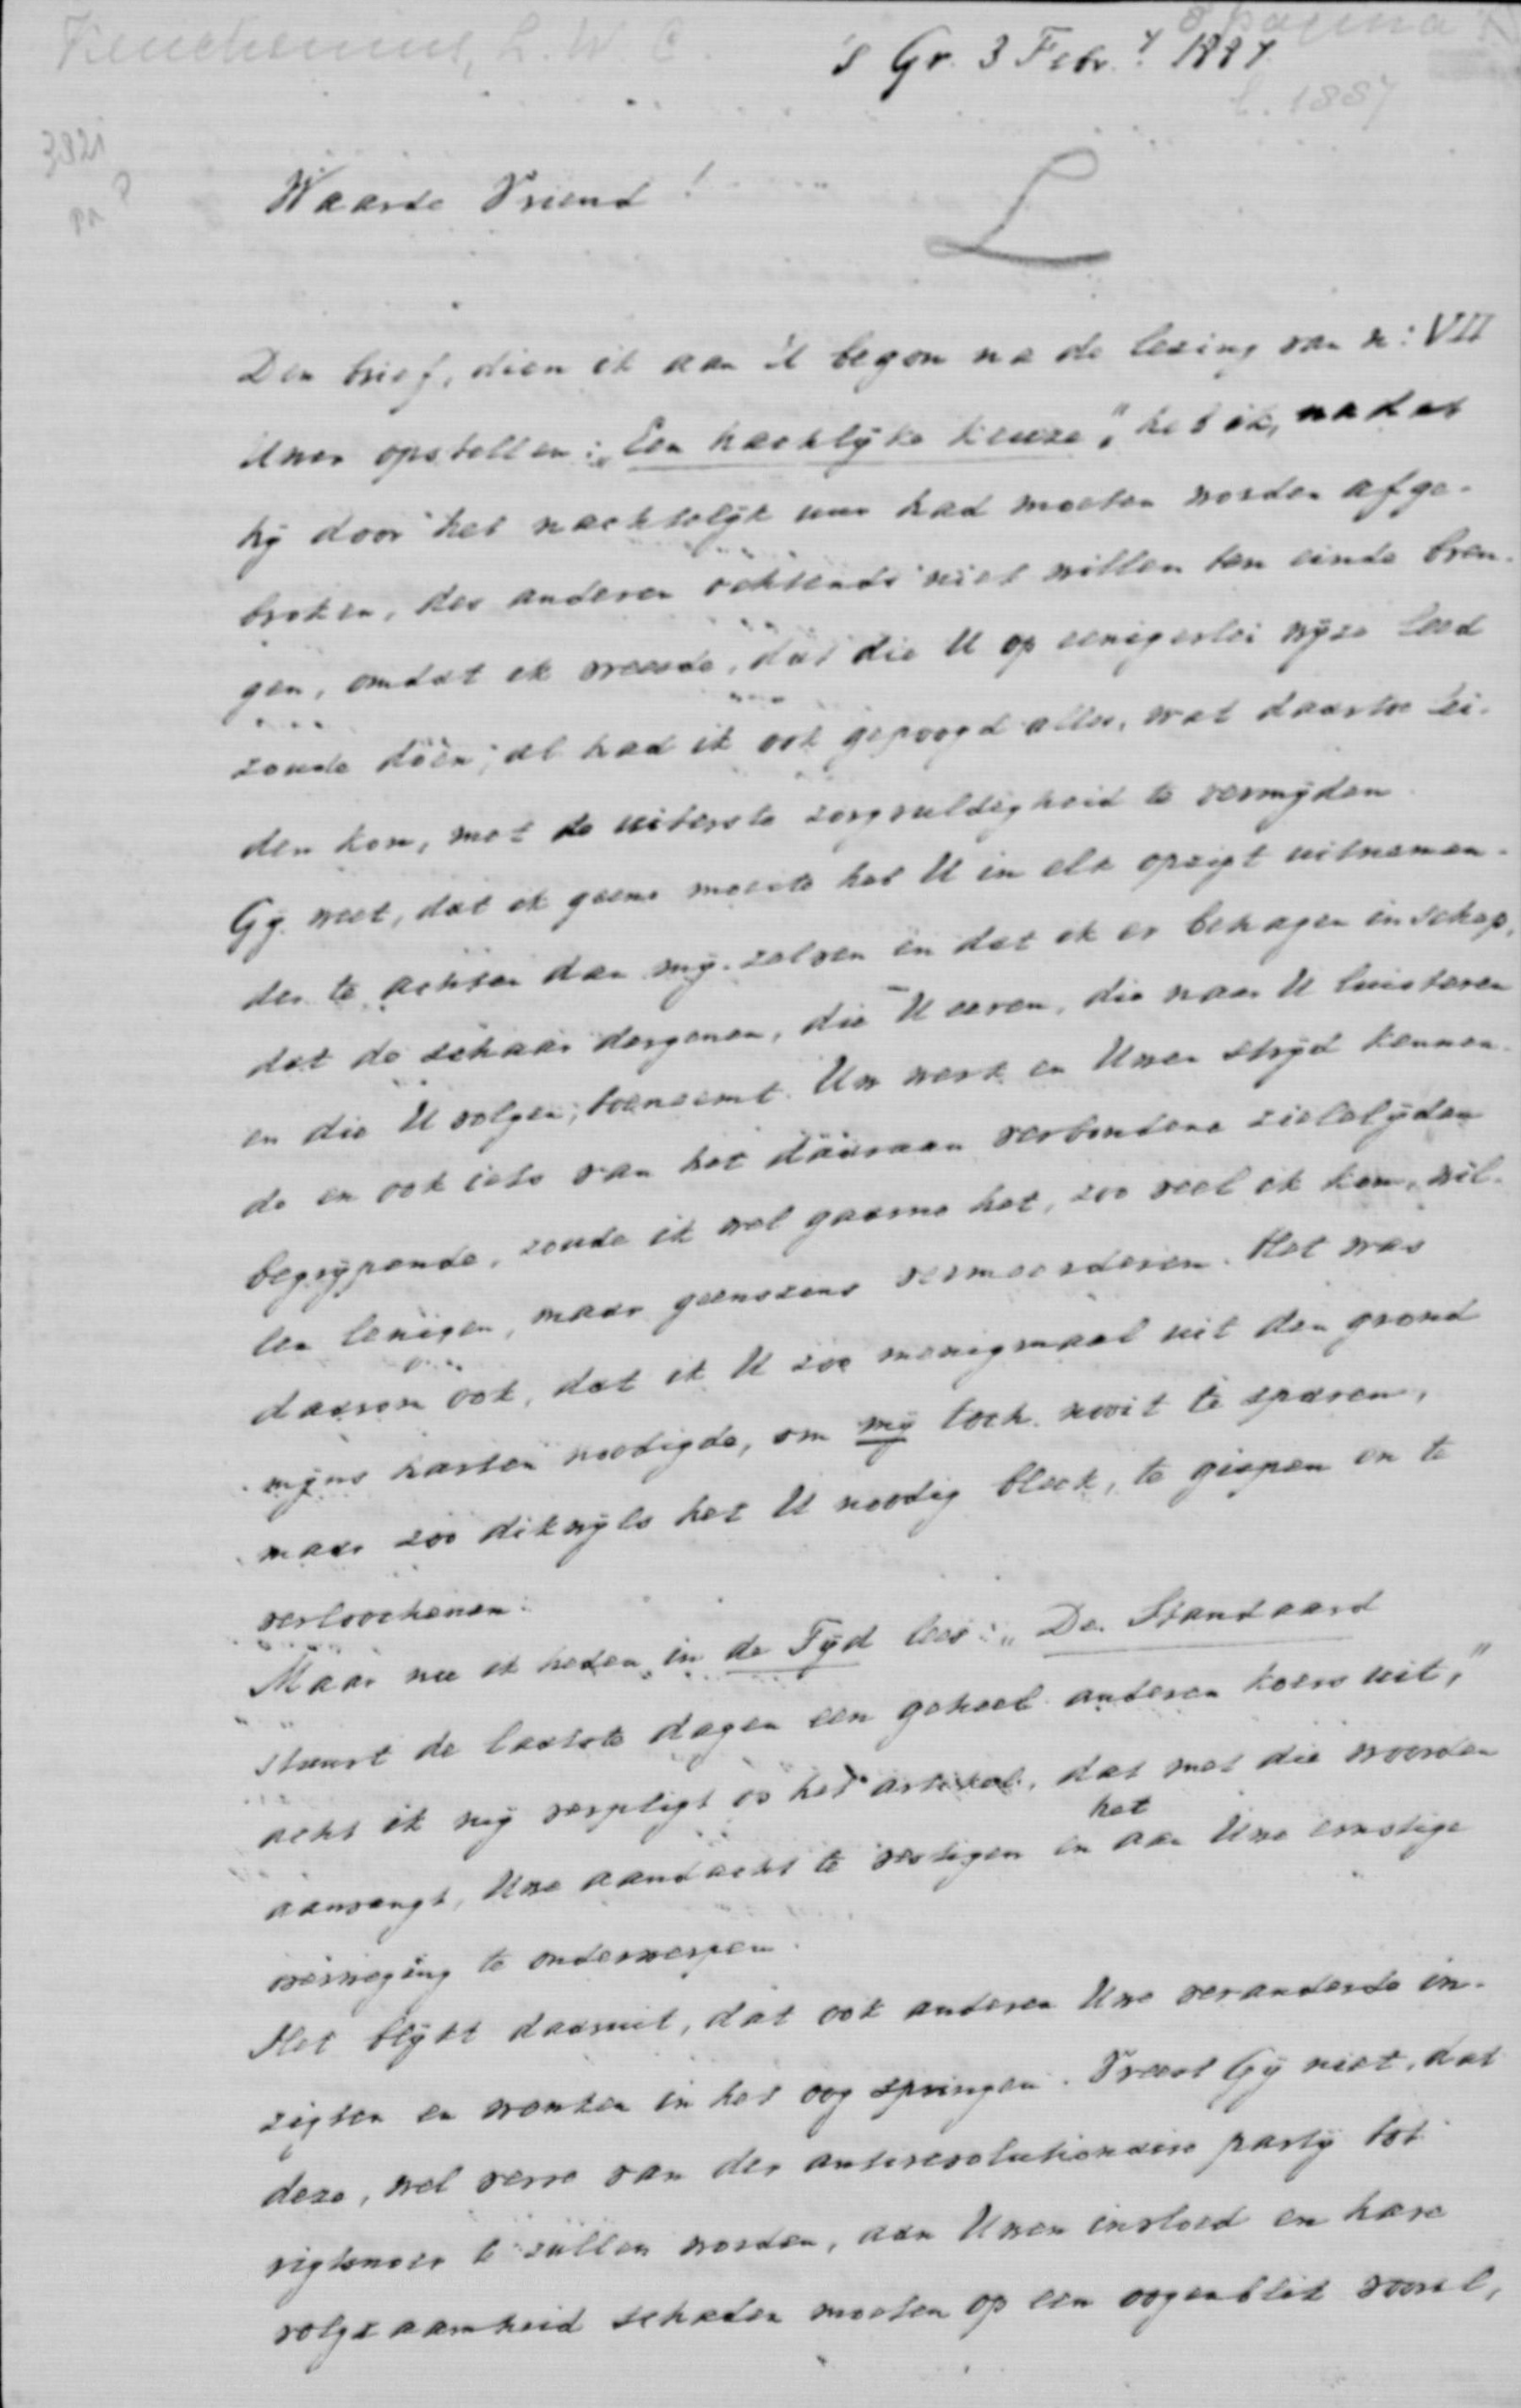 Keuchenius, L. W. C.
's Gr. 3 Febr.y 1887
b. 1887
3821
Waarde Vriend!
L
Den brief, dien ik aan U begon na de lezing van n: VII
Uwer opstellen: „Een hachlijke keuze", heb ik, nadat
hij door het nachtelijk uur had moeten worden afge-
broken, des anderen ochtends niet willen ten einde bren-
gen, omdat ik vreesde, dat die U op eenigerlei wijze leed
zoude doen, al had ik ook gepoogd alles, wat daartoe lei-
den kon, met de uiterste zorgvuldigheid te vermijden.
Gij weet, dat ik geene moeite heb U in elk opzigt uitnemen-
der te achten dan mij-zelven en dat ik er behagen in schep,
dat de schaar dergenen, die U eeren, die naar U luisteren
en die U volgen, toeneemt. Uw werk en Uwen strijd kennen-
de en ook iets van het daaraan verbondene zielelijden
begrijpende, zoude ik wel gaarne het, zoo veel ik kon, wil-
len lenigen, maar geenszins vermeerderen. Het was
daarom ook, dat ik U zoo menigmaal uit den grond
mijns harten noodigde, om mij toch nooit te sparen,
maar zoo dikwijls het U noodig bleek, te gispen en te
verloochenen.
Maar nu ik heden in de Tijd lees: „De Standaard
stuurt de laatste dagen een geheel anderen koers uit,"
acht ik mij verpligt op het artikel, dat met die woorden
aanvangt, Uwe aandacht te vestigen en het aan Uwe ernstige
overweging te onderwerpen.
Het blijkt daaruit, dat ook anderen Uwe veranderde in-
zigten en wenken in het oog springen. Vreest Gij niet, dat
deze, wel verre van der antirevolutionaire partij tot
rigtsnoer te zullen worden, aan Uwen invloed en hare
volgzaamheid schaden moeten op een oogenblik vooral,